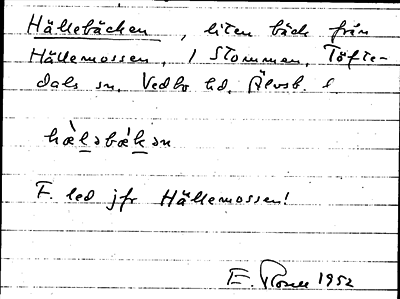 Hällebäcken, liten bäck från
Hällemossen, 1 Stommen, Töfte-
dals sn, Vedbo hd, Älvsb. l
hæ̀l̠əbǽk̠ən
F. led jfr Hällemossen!
E. 1952